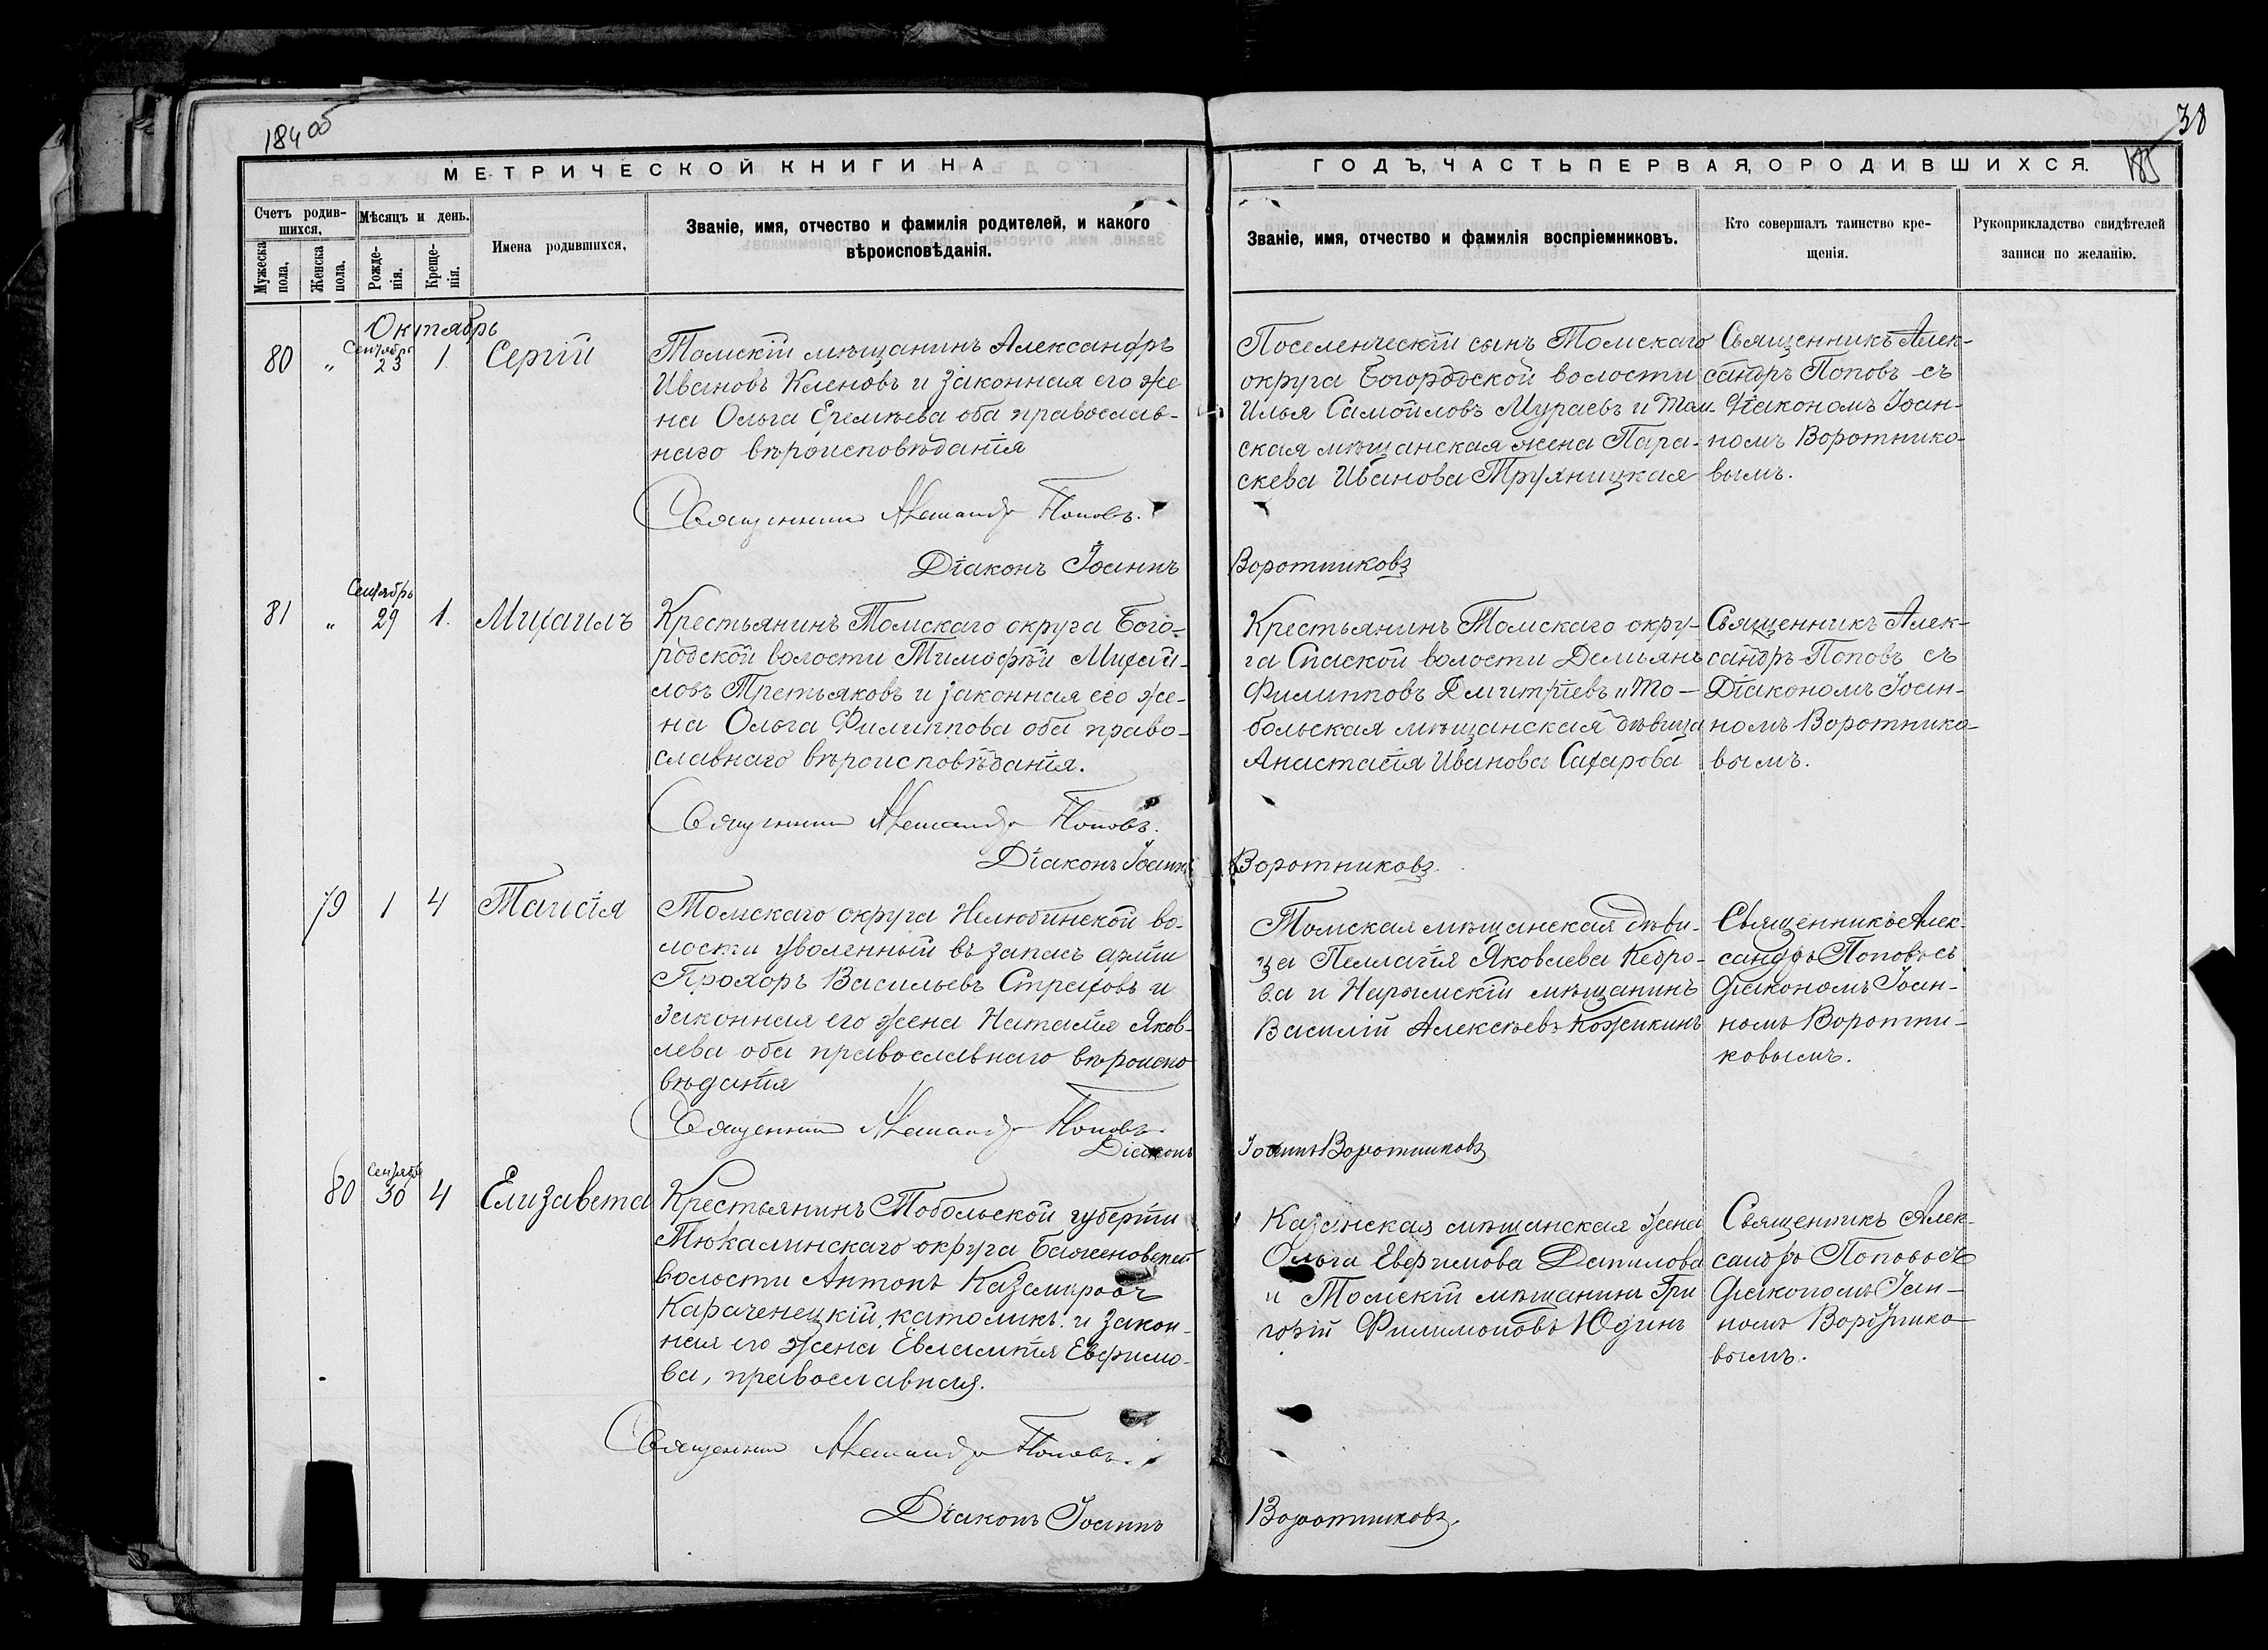 184 об
38
185
МЕТРИЧЕСКОЙ КНИГИ НА
ГОДЪ, ЧАСТЬ ПЕРВАЯ, О РОДИВШИХСЯ.
Счетъ родив-
шихся,
Мѣсяцъ и день.
Мужеска
пола,
Женска
пола.
Рожде-
нія.
Креще-
нія.
Имена родившихся,
Званіе, имя, отчество и фамилія родителей, и какого
вѣроисповѣданія.
Званіе, имя, отчество и фамилія воспріемниковъ.
Кто совершалъ таинство кре-
щенія.
Рукоприкладство свидѣтелей
записи по желанію.
Октябрь
80 " Сентябрь 23 1. Сергій
Томскій мѣщанинъ Александръ
Ивановъ Кленовъ и законная его же
на Ольга Еремѣева оба православ-
наго вѣроисповѣданія
Священникъ Александръ Поповъ.
Діаконъ Іоаннъ Воротниковъ
Поселенческій сынъ Томскаго
округа Богородской волости
Илья Самойловъ Мураевъ и Том-
ская мѣщанская жена Пара-
скева Иванова Труляницкая
Священникъ Алек-
сандръ Поповъ съ
Діакономъ Іоан-
номъ Воротнико-
вымъ.
81 " Сентябрь 29 1. Михаилъ
Крестьянинъ Томскаго округа Бого-
родской волости Тимофѣй Михай-
ловъ Третьяковъ и законная его же-
на Ольга Филиппова оба право-
славнаго вѣроисповѣданія.
Священникъ Александръ Поповъ.
Діаконъ Іоаннъ Воротниковъ.
Крестьянинъ Томскаго окру-
га Спаской волости Демьянъ
Филипповъ Дмитріевъ и То-
больская мѣщанская дѣвица
Анастасія Иванова Сахарова
Священникъ Алек-
сандръ Поповъ съ
Діакономъ Іоан-
номъ Воротнико-
вымъ.
79 1 4 Таисія
Томскаго округа Нелюбинской во-
лости уволенный въ запасъ арміи
Прохоръ Васильевъ Страховъ и
законная его жена Наталія Яков-
лева оба православнаго вѣроиспо
вѣданія
Священникъ Александръ Поповъ
Діаконъ Іоаннъ Воротниковъ
Томская мѣщанская дѣви-
ца Пеллагія Яковлева Кедро-
ва и Нарымскій мѣщанинъ
Василій Алексѣевъ Кожикинъ
Священникъ Алек-
сандръ Поповъ съ
Діакономъ Іоан-
номъ Воротни-
ковымъ.
80 Сентябрь 30 4 Елизавета
Крестьянинъ Тобольской губерніи
Тюкалинскаго округа Баженовской
волости Антонъ Казамировъ
Караченецкій, католикъ. и закон-
ная его жена Евлампія Евфимо-
ва, православная.
Священникъ Александръ Поповъ.
Діаконъ Іоаннъ Воротниковъ.
Казанская мѣщанская жена
Ольга Евфимова Данилова
и Томскій мѣщанинъ Гри
горій Филимоновъ Юдинъ
Священникъ Алек-
сандръ Поповъ съ
Діакономъ Іоан-
номъ Воротнико-
вымъ.